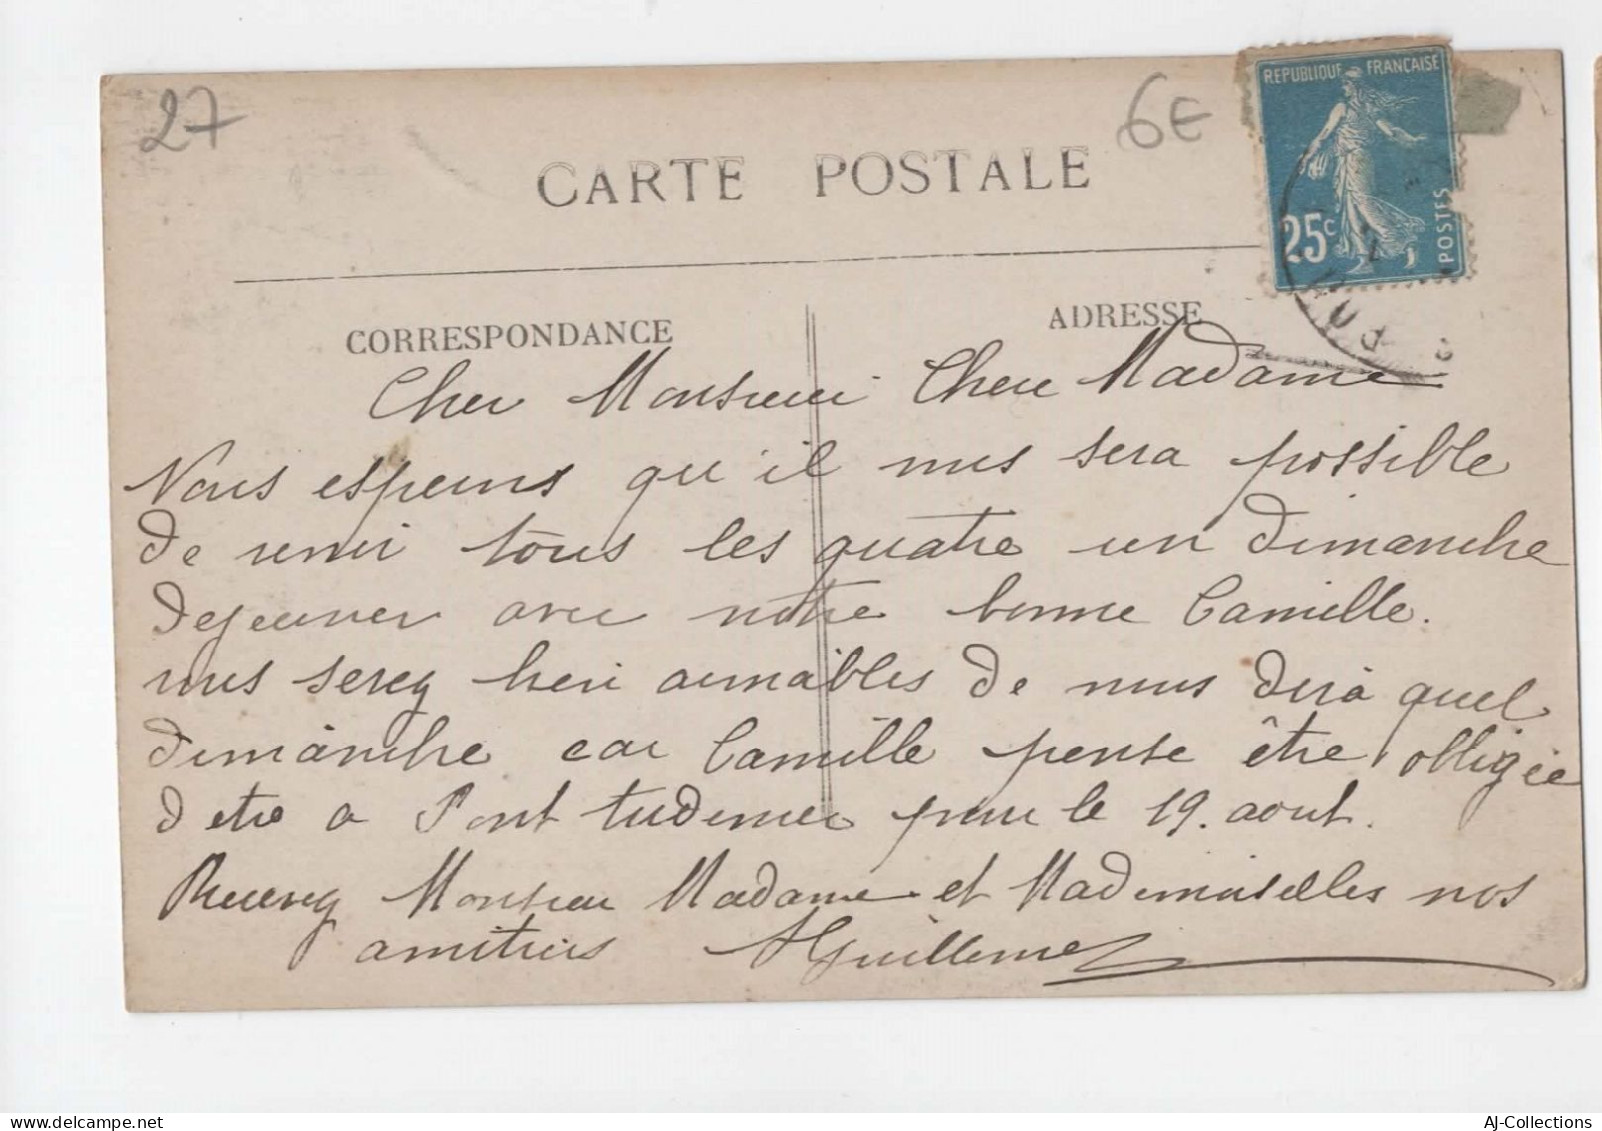 27
6E
REPUBLIQUE FRANCAISE
25c
POSTES
CARTE POSTALE
CORRESPONDANCE
ADRESSE
Cher Monsieur Chere Madame
Nous esperons qu'il nous sera possible
de venir tous les quatre un dimanche
dejeuner avec notre bonne Camille.
nous serez bien aimables de nous dira quel
dimanche car Camille pense être obligée
d etre a Pont tudemer pour le 19. aout.
Recevez Monsieur Madame et Mademoiselles nos
amitiés AGuillemez
AJ-Collections